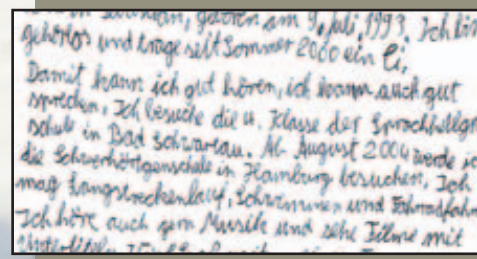 in, geboren am 9. Juli 1993. Ich bin
gehörlos und trage seit Sommer 2000 ein CI,
Damit kann ich gut hören, ich kann auch gut
sprechen, Ich besuche die 4. Klasse der Sprachheilgr
schule in Bad Schwartau. Ab August 2004 werde ic
die Schwerhörigenschule in Hamburg besuchen, Ich
mag Langstreckenlauf, Schwimmen und Fahrradfahr
Ich höre auch gern Musik und sehe Filme mit
Untertiteln